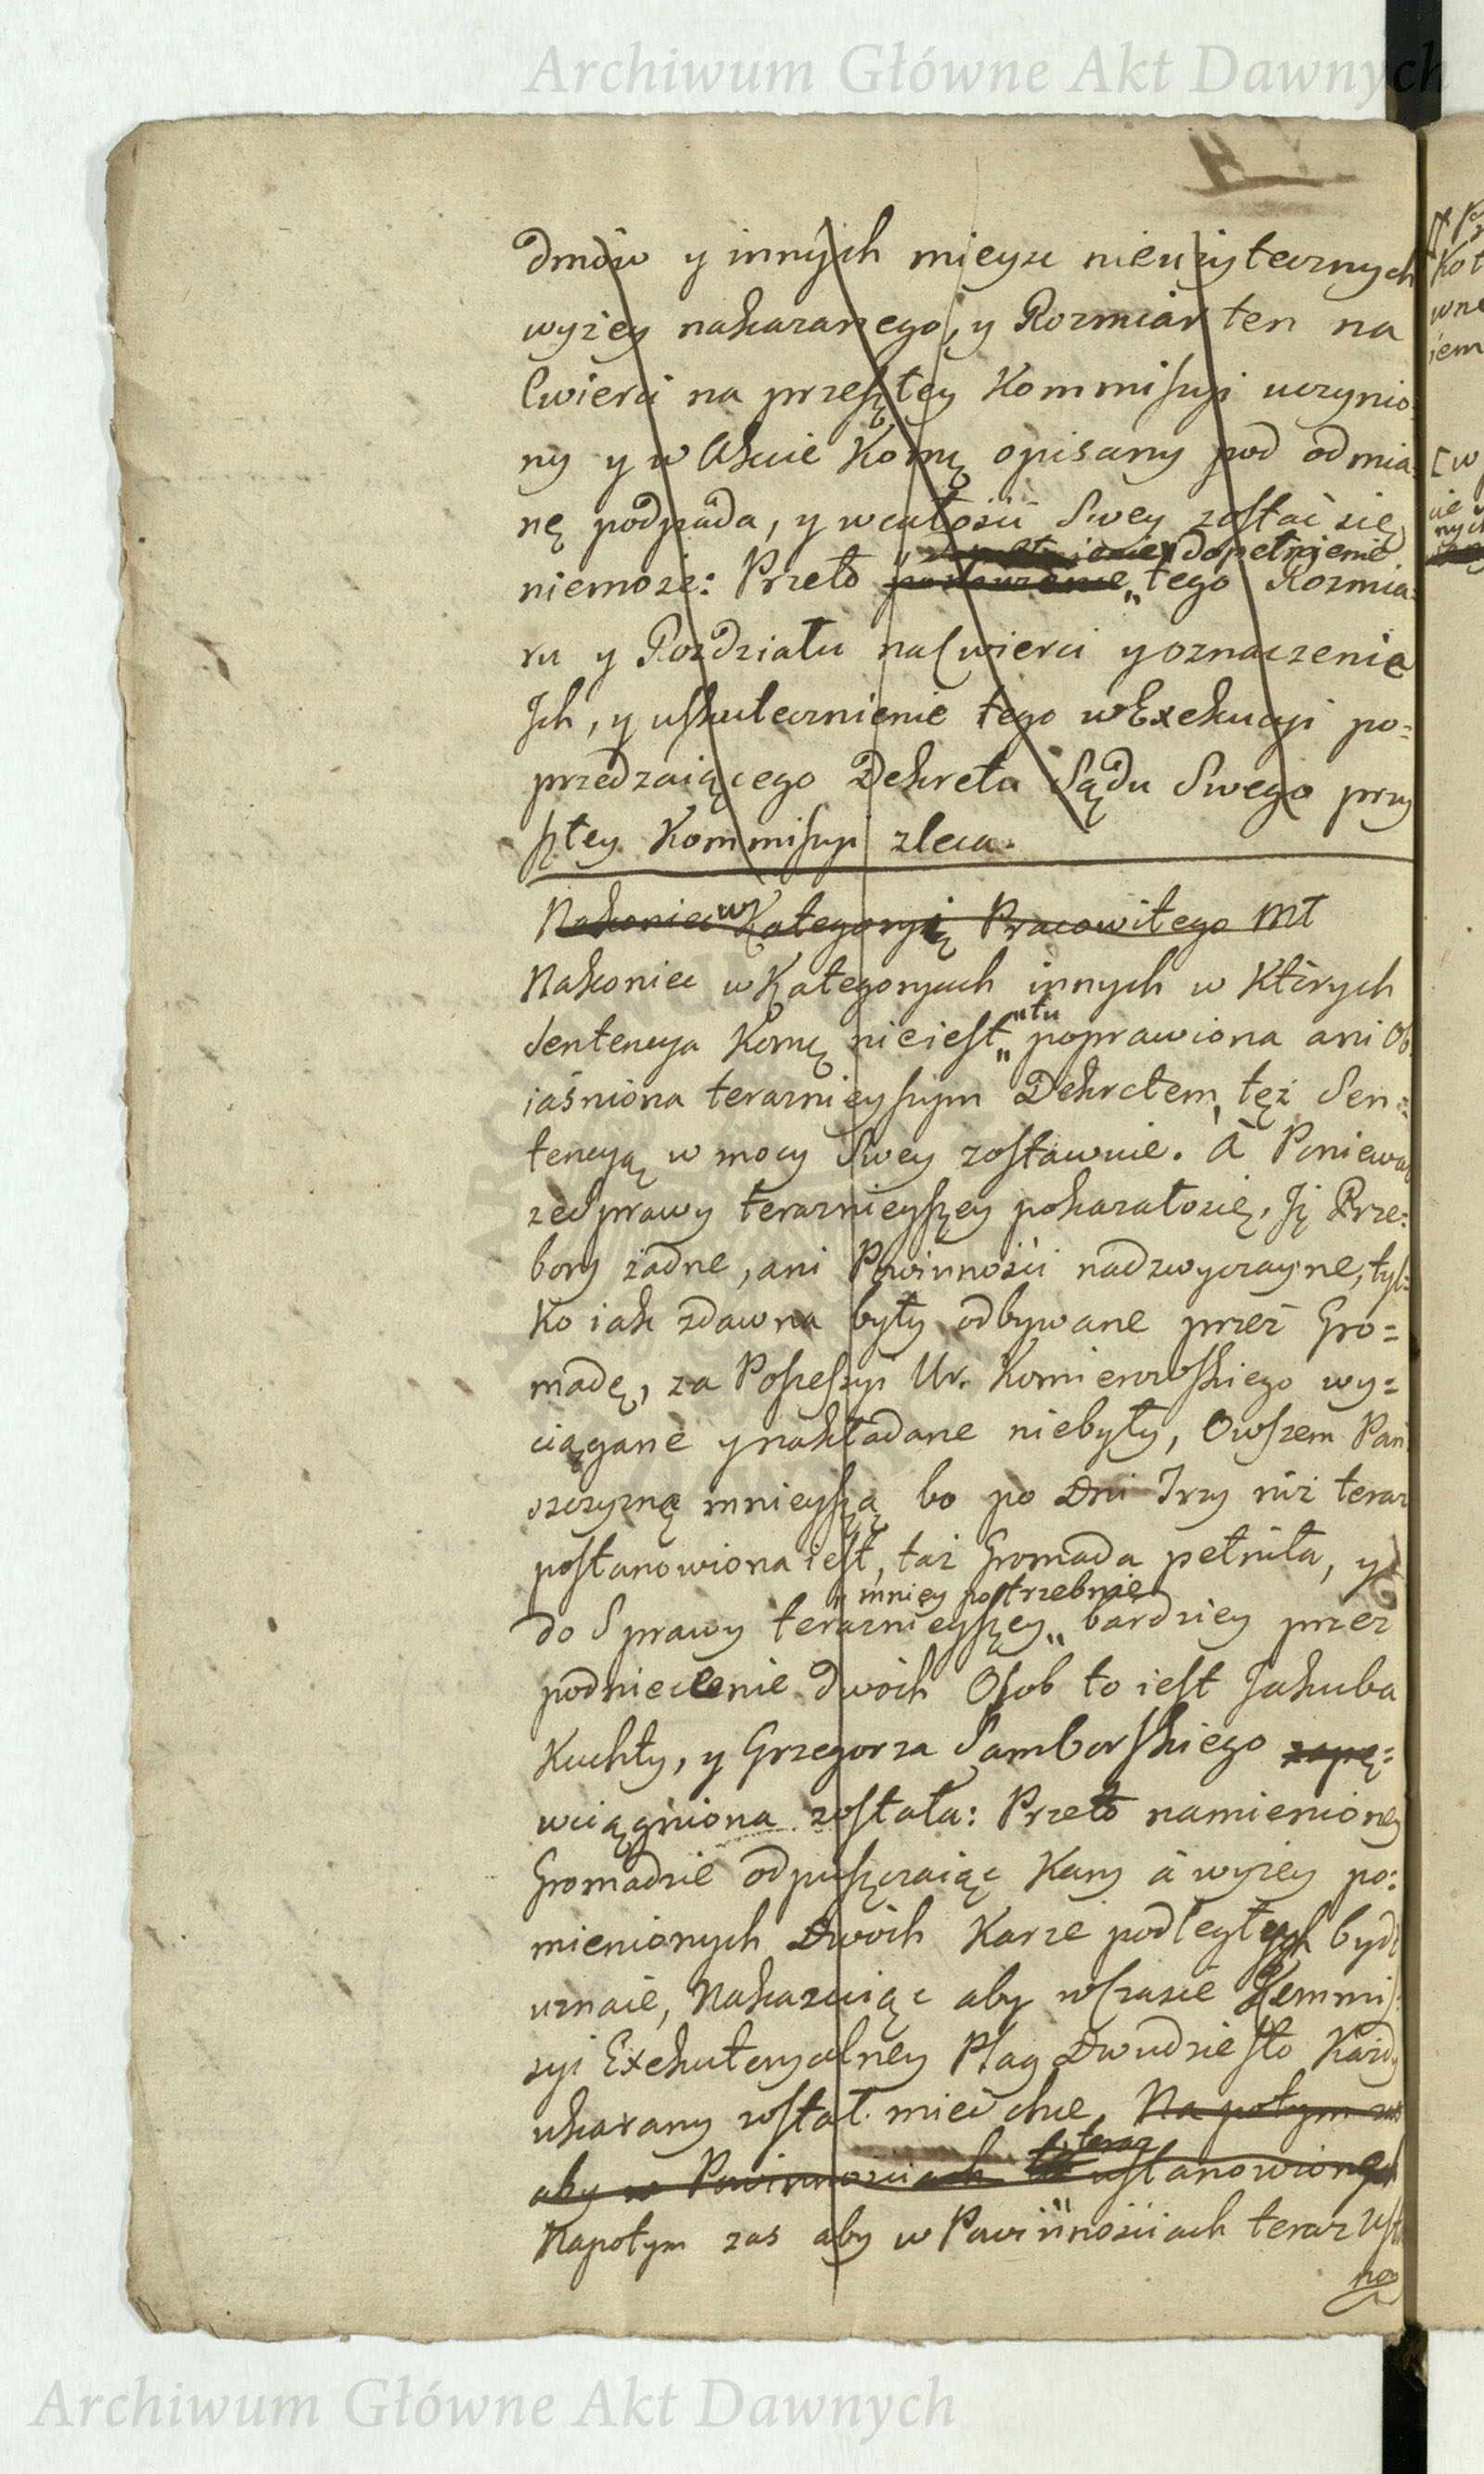 Archiwum Główne Akt Dawnych
dmów y innych mieysc nieużytecznych
wyżey nakazanego, y Rozmiar ten na
Cwierci na przeszłey Kommissyi uczynio:
ny y w Akcie Kommę opisany pod odmia:
nę podpada, y wcałości Swey zostać się
dopełnienie
niemoże: Przeto tego Rozmia:
ru y Rozdziału na Cwierci y oznaczenie
Jch, y uskutecznienie tego w Exekucyi po=
przedzaiącego Dekretu Sądu Swego przy
szłey Kommissyi zleca.
Nakoniec w Kategoryią Pracowitego Mt
Nakoniec w Kategoryach innych w Których
tu
Sentencya Kommę nieiest poprawiona ani Ob
iaśniona teraznieyszym Dekretem, tęż Sen=
tencyą w mocy Swey zostawuie. A Poniewaz
ze Sprawy teraznieyszey pokazałosię, Jż Prze:
bory żadne, ani Powinności nadzwyczayne, tyl=
Ko iak zdawna były odbywane przez Gro=
madę, za Possessyi Ur. Komierowskiego wy=
ciągane y nakładane niebyły, Owszem Pań
szczyznę mnieyszą bo po Dni Trzy niż teraz
postanowiona iest, taż Gromada pełniła, y
mniey potrzebnie
do Sprawy teraznieyszey bardziey przez
podniecenie dwóch Osob to iest Jakuba
Kuchty, y Grzegorza Samborskiego
wciągniona została: Przeto namienioney
Gromadzie odpuszczaiąc Kary a wyżey po:
mienionych Dwóch Karze podległych bydź
uznaie, Nakazuiąc aby w Czasie Kommis
syi Exekutoryalney Plag Dwudziesto Każdy
ukarany został mieć chce, Na potym zas
teraz
aby w Powinnosciach ustanowionych
Napotym zas aby w Powinnościach teraz Usta
no
Archiwum Główne Akt Dawnych